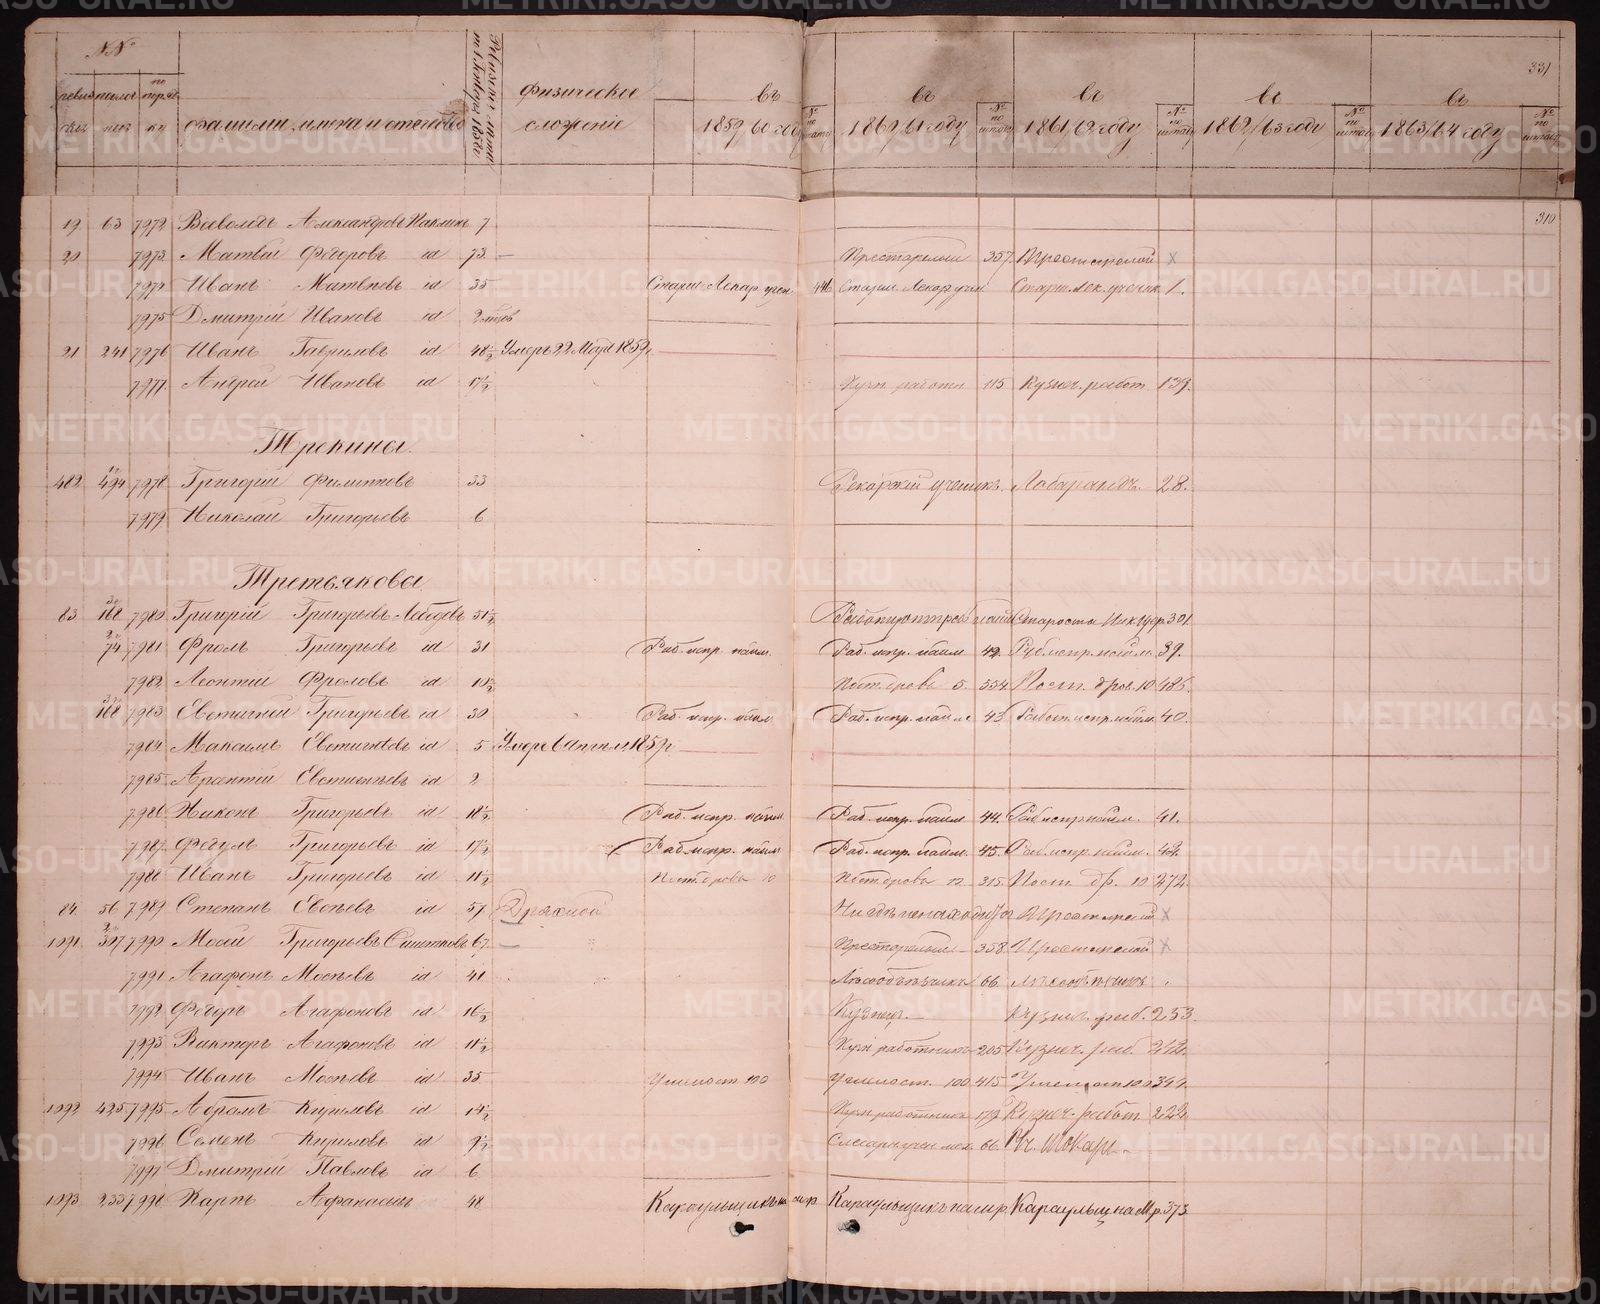 331
№№ Фамилии, имена и отечество Физическое сложение въ 1859/60 году № по штату въ 1860/61 году № по штату въ 1861/62 году № по штату въ 1862/63 году № по штату въ 1863/64 году № по штату
310
19 63 7972 Всеволодъ Александровъ 7
20 7973 Матвѣй Федоровъ id 73 Престарелый 357 Престарелый X
7974 Иванъ Матвѣевъ id 35 Старш. Лекар. учен 446 Старш. Лекар. учен Старш. лек. ученик 1.
7975 Дмитрій Ивановъ id
21 241 7976 Иванъ Гавриловъ id 48½ Умеръ 22 Мая 1859г.
7977 Андрей Ивановъ id 17½ Кузн. работн 115 Кузнеч. работ. 139.
Трекины.
482 494 7978 Григорій Филипповъ 33 Лекарскій ученикъ 28.
7979 Николай Григорьевъ 6
Третьяковы.
83 168 7980 Григорій Григорьевъ Лебедевъ 51½ Староста 301
74 7981 Фролъ Григорьевъ id 31 Раб. испр. наим. Раб. испр. наим 42. Раб. испр. наим. 39.
7982 Леонтій Фроловъ id 10½ Пост. дровъ 5. 554. Пост. дров. 10 485.
168 7983 Евстигней Григорьевъ id 30 Раб. испр. наим Раб. испр. наим 43. Работ. испр. наим. 40.
7984 Максимъ Евстигнеевъ id 5 Умеръ 6 Апрѣля 1859г.
7985 Арсентій Евстигнеевъ id 2
7986 Никонъ Григорьевъ id 18½ Раб. испр. наим Раб. испр. наим 44. Раб. испр. наим. 41.
7987 Федулъ Григорьевъ id 17½ Раб. испр. наим Раб. испр. наим. 45. Раб. испр. наим. 42.
7988 Иванъ Григорьевъ id 11½ Пост. дрова 10 Пост. дрова 12 315. Пост. др. 10 272.
84 56 7989 Степанъ Евсѣевъ id 57 Дряхлой Нигдѣ не находится Престарелый X
1091 307 7990 Мосей Григорьевъ 67 Престарелый 358 Престарелой X
7991 Агафонъ Мосѣевъ id 41 Лѣсообъѣзчикъ 66 Лѣсообъѣзчикъ
7992 Федоръ Агафоновъ id 16½ Кузнеч. Кузнеч. раб. 253.
7993 Викторъ Агафоновъ id 11½ Кузн. работникъ 205 Кузнеч. раб. 242.
7994 Иванъ Мосѣевъ id 35 Углепост. 100 Углепост. 100 415 Углепост 100 344.
1092 425 7995 Абрамъ Кириловъ id 14½ Кузн. работникъ 179 Кузнеч. работ 222.
7996 Семенъ Кириловъ id 9½ Слесарн. учен. мол. 66. Уч. токар.
7997 Дмитрій Павловъ id 6
1093 233 7998 Карпъ Афанасьевъ 48 Караульщикъ Караульщикъ на мр. Караульщ. на Мр. 373.